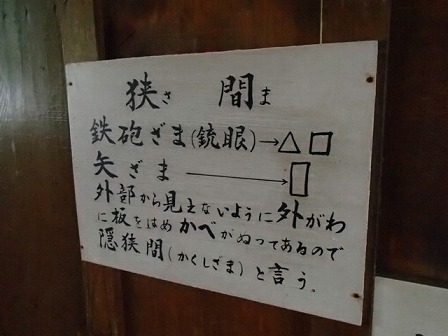 狭さ 間ま
鉄砲ざま(銃眼)→△□
矢ざま→▯
外部から見えないように外がわ
に板をはめかべがぬってあるので
隠狭間(かくしざま)と言う.